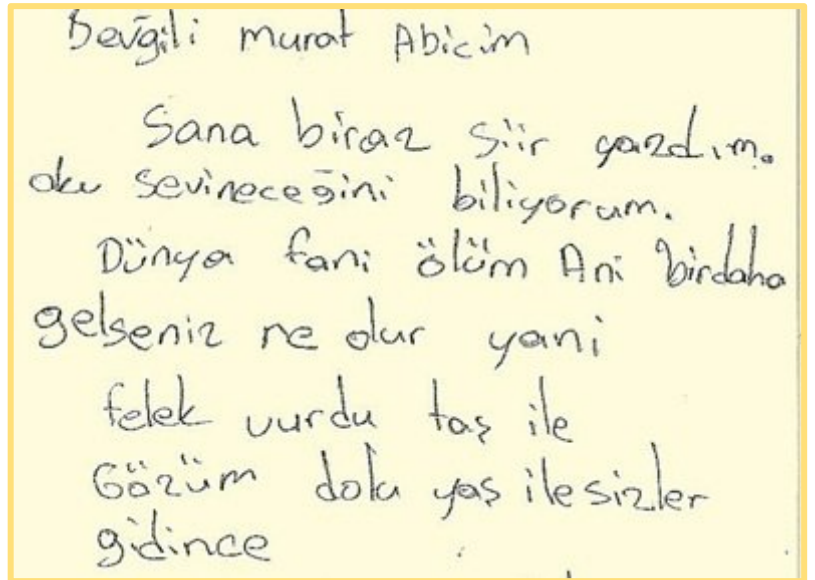 Sevgili murat Abicim
Sana biraz şiir yazdım.
oku sevineceğini biliyorum.
Dünya fani ölüm Ani birdaha
gelseniz ne olur yani
felek vurdu taş ile
Gözüm dolu yaş ilesizler
gidince